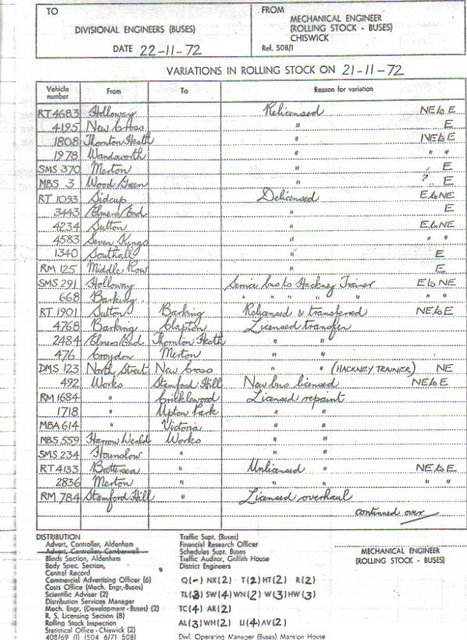 TO
DIVISIONAL ENGINEERS (BUSES)
DATE 22-11-72
FROM
MECHANICAL ENGINEER
(ROLLING STOCK - BUSES)
CHISWICK
Ref. 508/1
VARIATIONS IN ROLLING STOCK ON 21-11-72
Vehicle number From To Reason for variation
RT 4683 Holloway Relicensed NE to E
4195 New Cross " E
1808 Thornton Heath " NE to E
1978 Wandsworth " " "
SMS 370 Merton " E
MBS 3 Wood Green " E
RT 1093 Sidcup Delicensed E to NE
3443 Elmers End " E
4234 Sutton " E to NE
4583 Seven Kings " " "
1340 Southall " E
RM 125 Middle Row " E
SMS 291 Holloway Service bus to Hackney Trainer E to NE
668 Barking " " " " " "
RT 1901 Sutton Barking Relicensed & transferred NE to E
4768 Barking Clapton Licensed transfer
2484 Elmers End Thornton Heath " "
476 Croydon Merton " "
DMS 123 North Street New Cross " " (HACKNEY TRAINER) NE
492 Works Stamford Hill New bus licensed NE to E
RM 1684 " Cricklewood Licensed repaint
1718 " Upton Park " "
MBA 614 " Victoria " "
MBS 559 Harrow Weald Works " "
SMS 234 Hounslow " " "
RT 4133 Battersea " Unlicensed " NE to E
2836 Merton " " "
RM 784 Stamford Hill " Licensed overhaul
continued over
DISTRIBUTION
Advert. Controller, Aldenham
Advert. Controller, Camberwell
Blinds Section, Aldenham
Body Spec. Section,
Central Record
Commercial Advertising Officer (6)
Costs Office (Mech. Engr.-Buses)
Scientific Adviser (2)
Distribution Services Manager
Mech. Engr. (Development - Buses) (2)
R. S. Licensing Section (8)
Rolling Stock Inspection
Statistical Office - Chiswick (2)
408/69 (1) 504 (671) 508
Traffic Supt. (Buses)
Financial Research Officer
Schedules Supt. Buses
Traffic Auditor, Griffith House
District Engineers
Q (-) NX (2) T (2) HT (2) R (2)
TL (3) SW (4) WN (2) W (3) HW (3)
TC (4) AR (2)
AL (3) WH (2) U (4) AV (2)
Divl. Operating Manager (Buses) Mansion House
MECHANICAL ENGINEER
(ROLLING STOCK - BUSES)